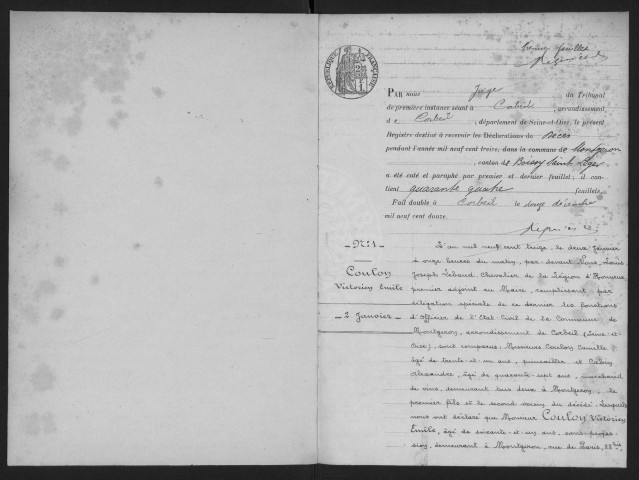 RÉPUBLIQUE FRANÇAISE
Premier feuillet
PAR nous Juge du Tribunal
de première instance séant à Corbeil, arrondissement
de Corbeil, département de Seine-et-Oise, le présent
Registre destiné à recevoir les Déclarations de Décès
pendant l'année mil neuf cent treize, dans la commune de Montgeron
, canton de Boissy Saint Léger
a été coté et paraphé par premier et dernier feuillet; il con-
tient quarante quatre feuillets
Fait double à Corbeil le douze décembre
mil neuf cent douze.
N° 1
Coulon
Victorien Emile
2 Janvier
L'an mil neuf cent treize, le deux Janvier
à onze heures du matin, par devant Nous, Louis
Joseph Lebaud, Chevalier de la Légion d'Honneur,
premier adjoint au Maire, remplissant par
délégation spéciale de ce dernier les fonctions
d'Officier de l'Etat-Civil de la Commune de
Montgeron, arrondissement de Corbeil (Seine-et-
Oise), sont comparus: Messieurs Coulon Camille
âgé de trente-et-un ans, quincailler et
Alexandre, âgé de quarante-sept ans, marchand
de vins, demeurant tous deux à Montgeron, le
premier fils et le second voisin du décédé. Lesquels
nous ont déclaré que Monsieur Coulon Victorien
Emile, âgé de soixante-et-un ans, sans profes-
sion, demeurant à Montgeron, rue de Paris, 22 bis